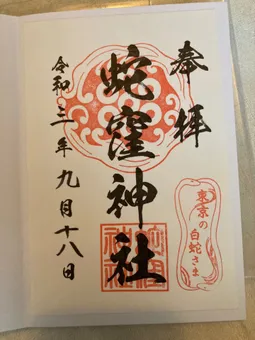 奉拝
蛇窪神社
令和三年九月十八日
東京の
白蛇さま
蛇窪
神社